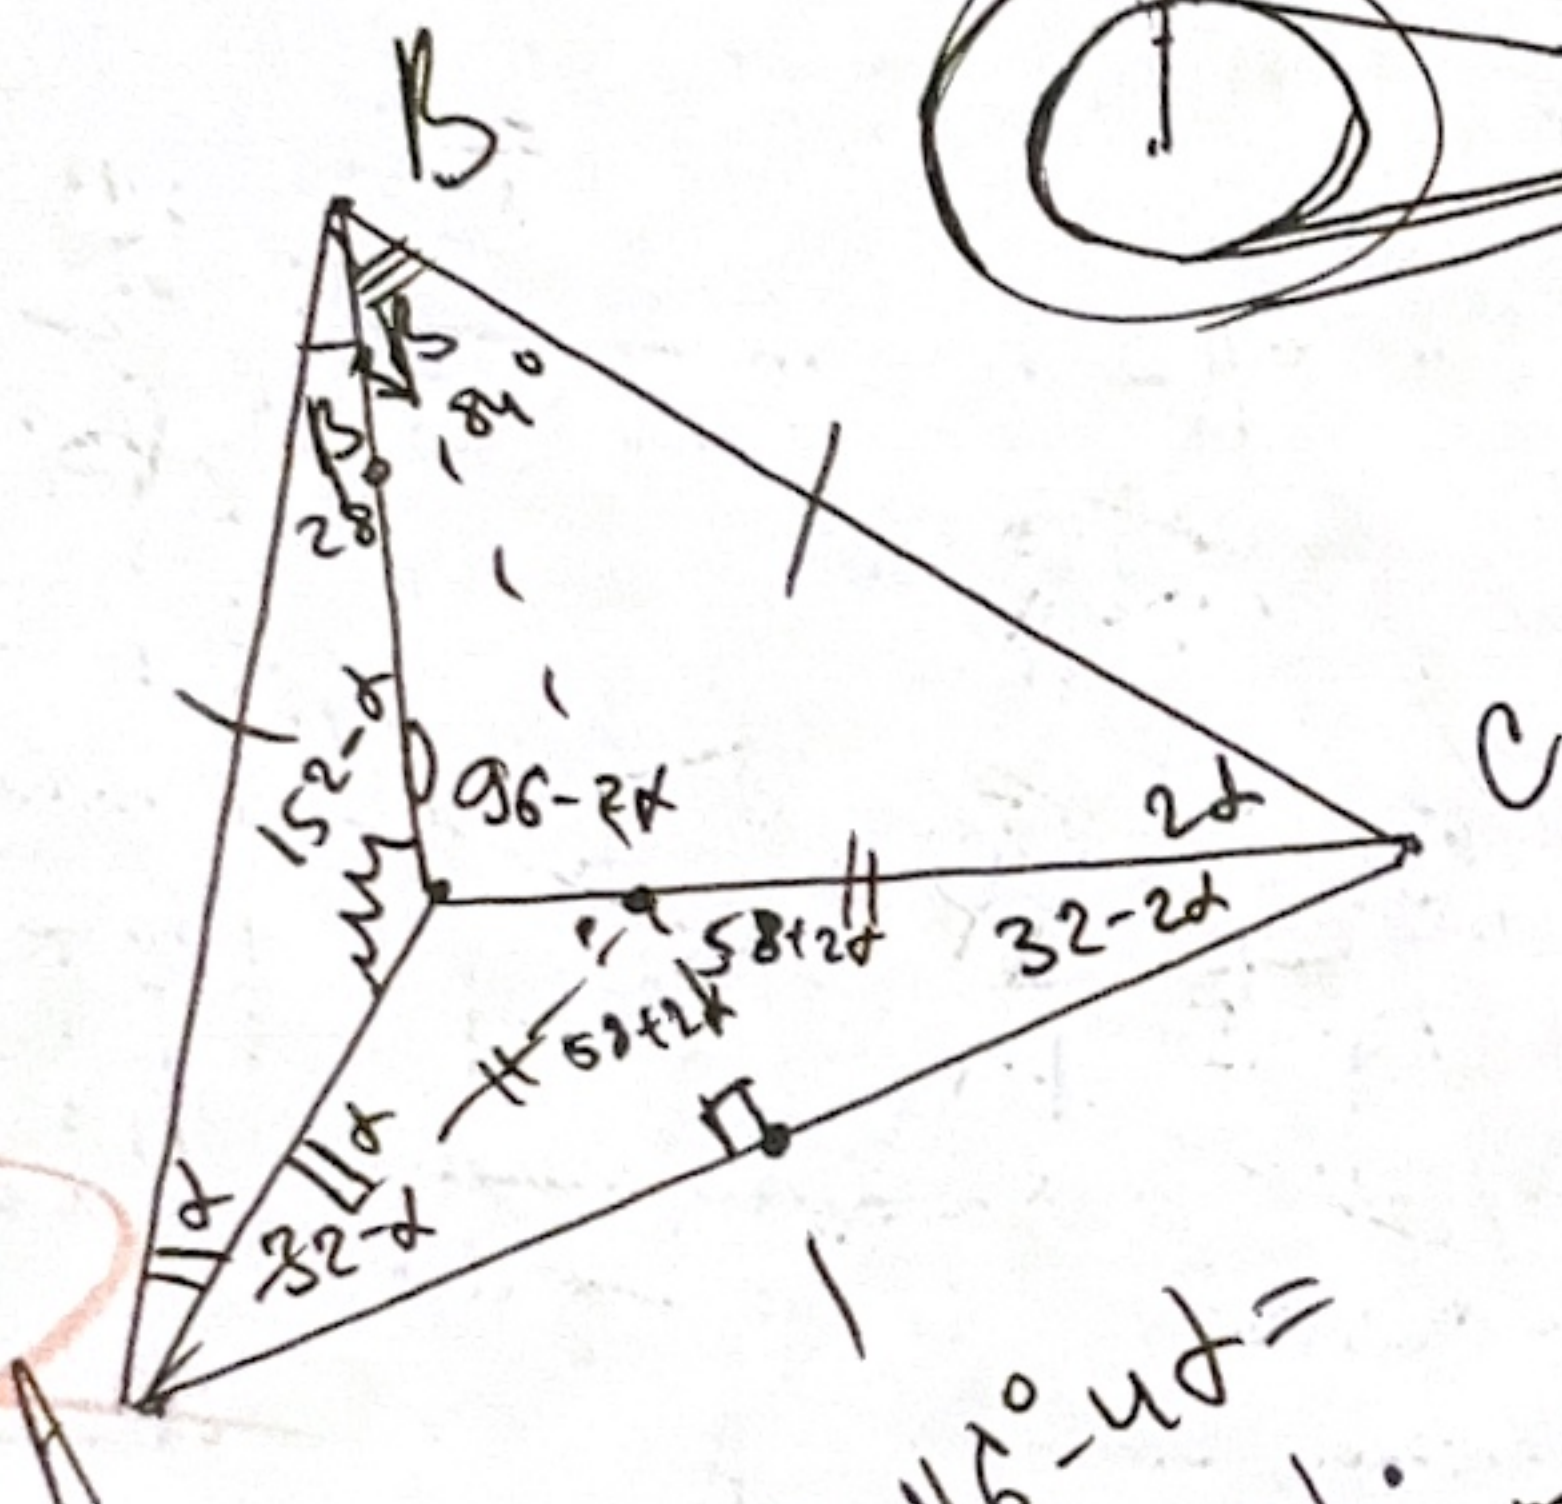 B
84°
28°
152-α
96-2α
2α
C
58+2α
32-2α
58+2α
α
α
32-α
°-4α=